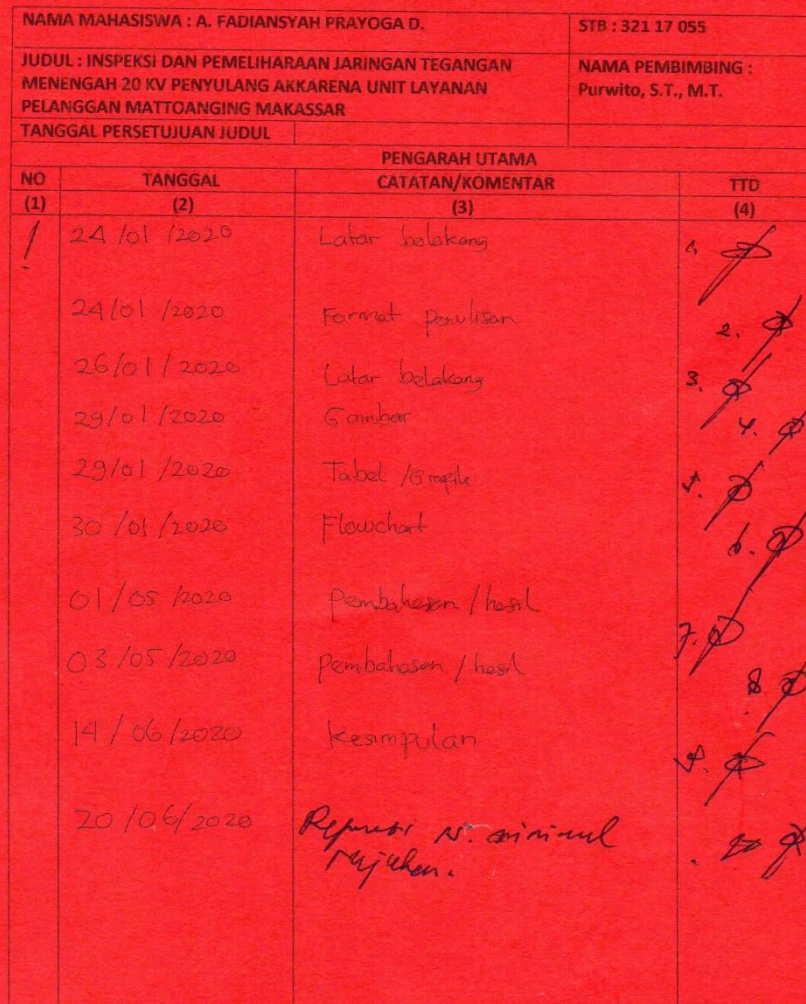 NAMA MAHASISWA : A. FADIANSYAH PRAYOGA D.
STB : 321 17 055
JUDUL : INSPEKSI DAN PEMELIHARAAN JARINGAN TEGANGAN
MENENGAH 20 KV PENYULANG AKKARENA UNIT LAYANAN
PELANGGAN MATTOANGING MAKASSAR
NAMA PEMBIMBING :
Purwito, S.T., M.T.
TANGGAL PERSETUJUAN JUDUL
PENGARAH UTAMA
NO TANGGAL CATATAN/KOMENTAR TTD
(1) (2) (3) (4)
1 24/01/2020 Latar belakang 1.
24/01/2020 Format penulisan 2.
26/01/2020 Latar belakang 3.
29/01/2020 Gambar 4.
29/01/2020 Tabel/Grafik 5.
30/01/2020 Flowchart 6.
01/05/2020 Pembahasan/hasil 7.
03/05/2020 Pembahasan/hasil 8.
14/06/2020 Kesimpulan 9.
20/06/2020 10